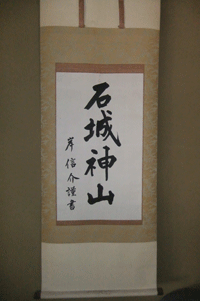 石城神山
岸信介謹書